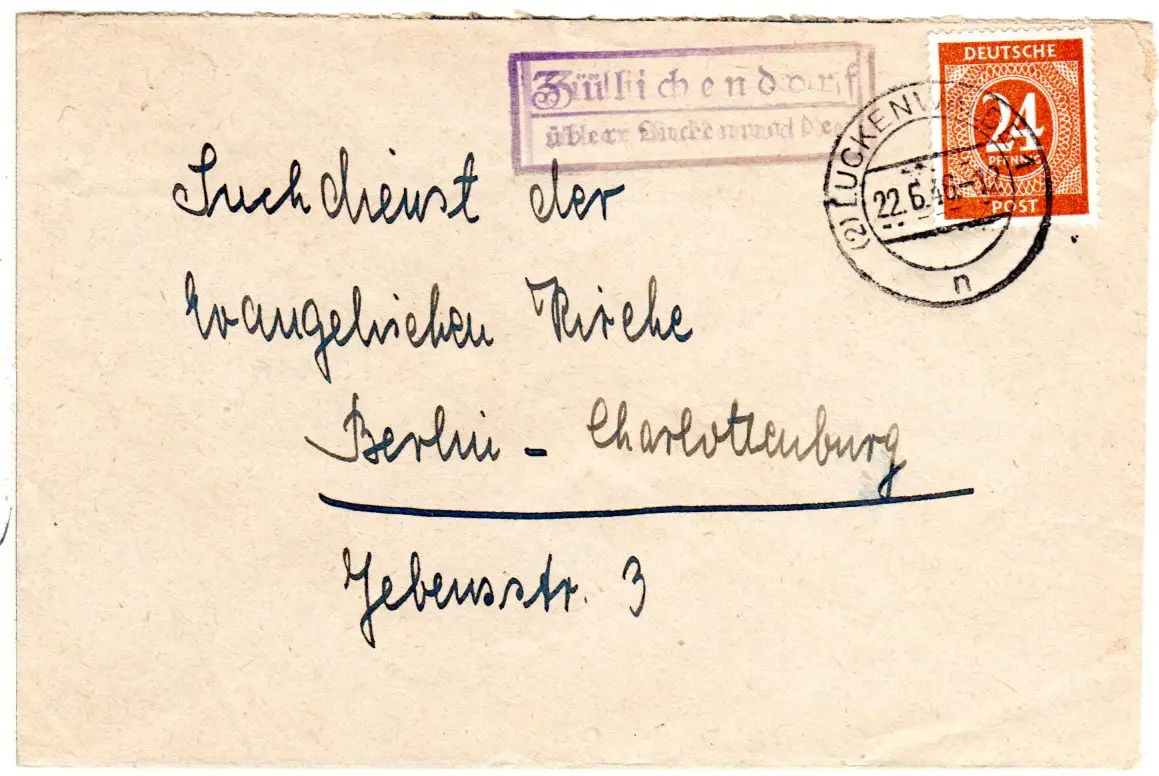 Züllichendorf
über Luckenwalde
DEUTSCHE
24
PFENNIG
POST
(2) LUCKENWALDE
22.6.46-12
n
Suchdienst der
Evangelischen Kirche
Berlin - Charlottenburg
Jebensstr. 3